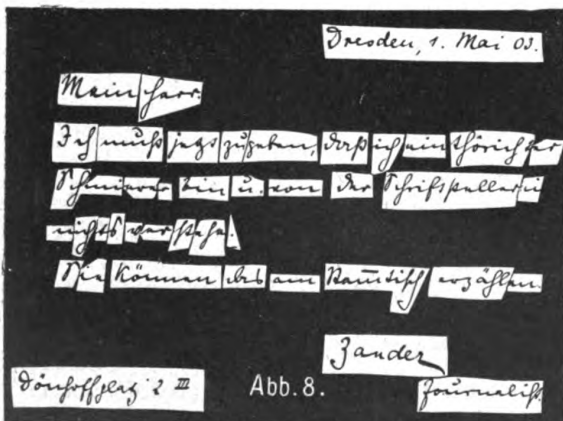 Dresden, 1. Mai 03.
Mein Herr.
Ich muß jetzt zugeben, daß ich ein thörichter
Schmierer bin u. von der Schriftstellerei
nichts verstehe.
Sie können das am Stam̅tisch erzählen.
Zander
Journalist.
Dönhoffplatz 2 III
Abb. 8.